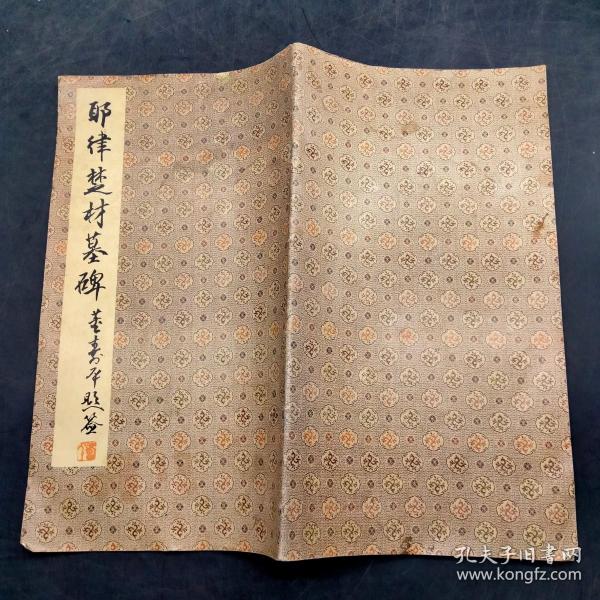 耶律楚材墓碑 董寿平题签
孔夫子旧书网
www.kongfz.com